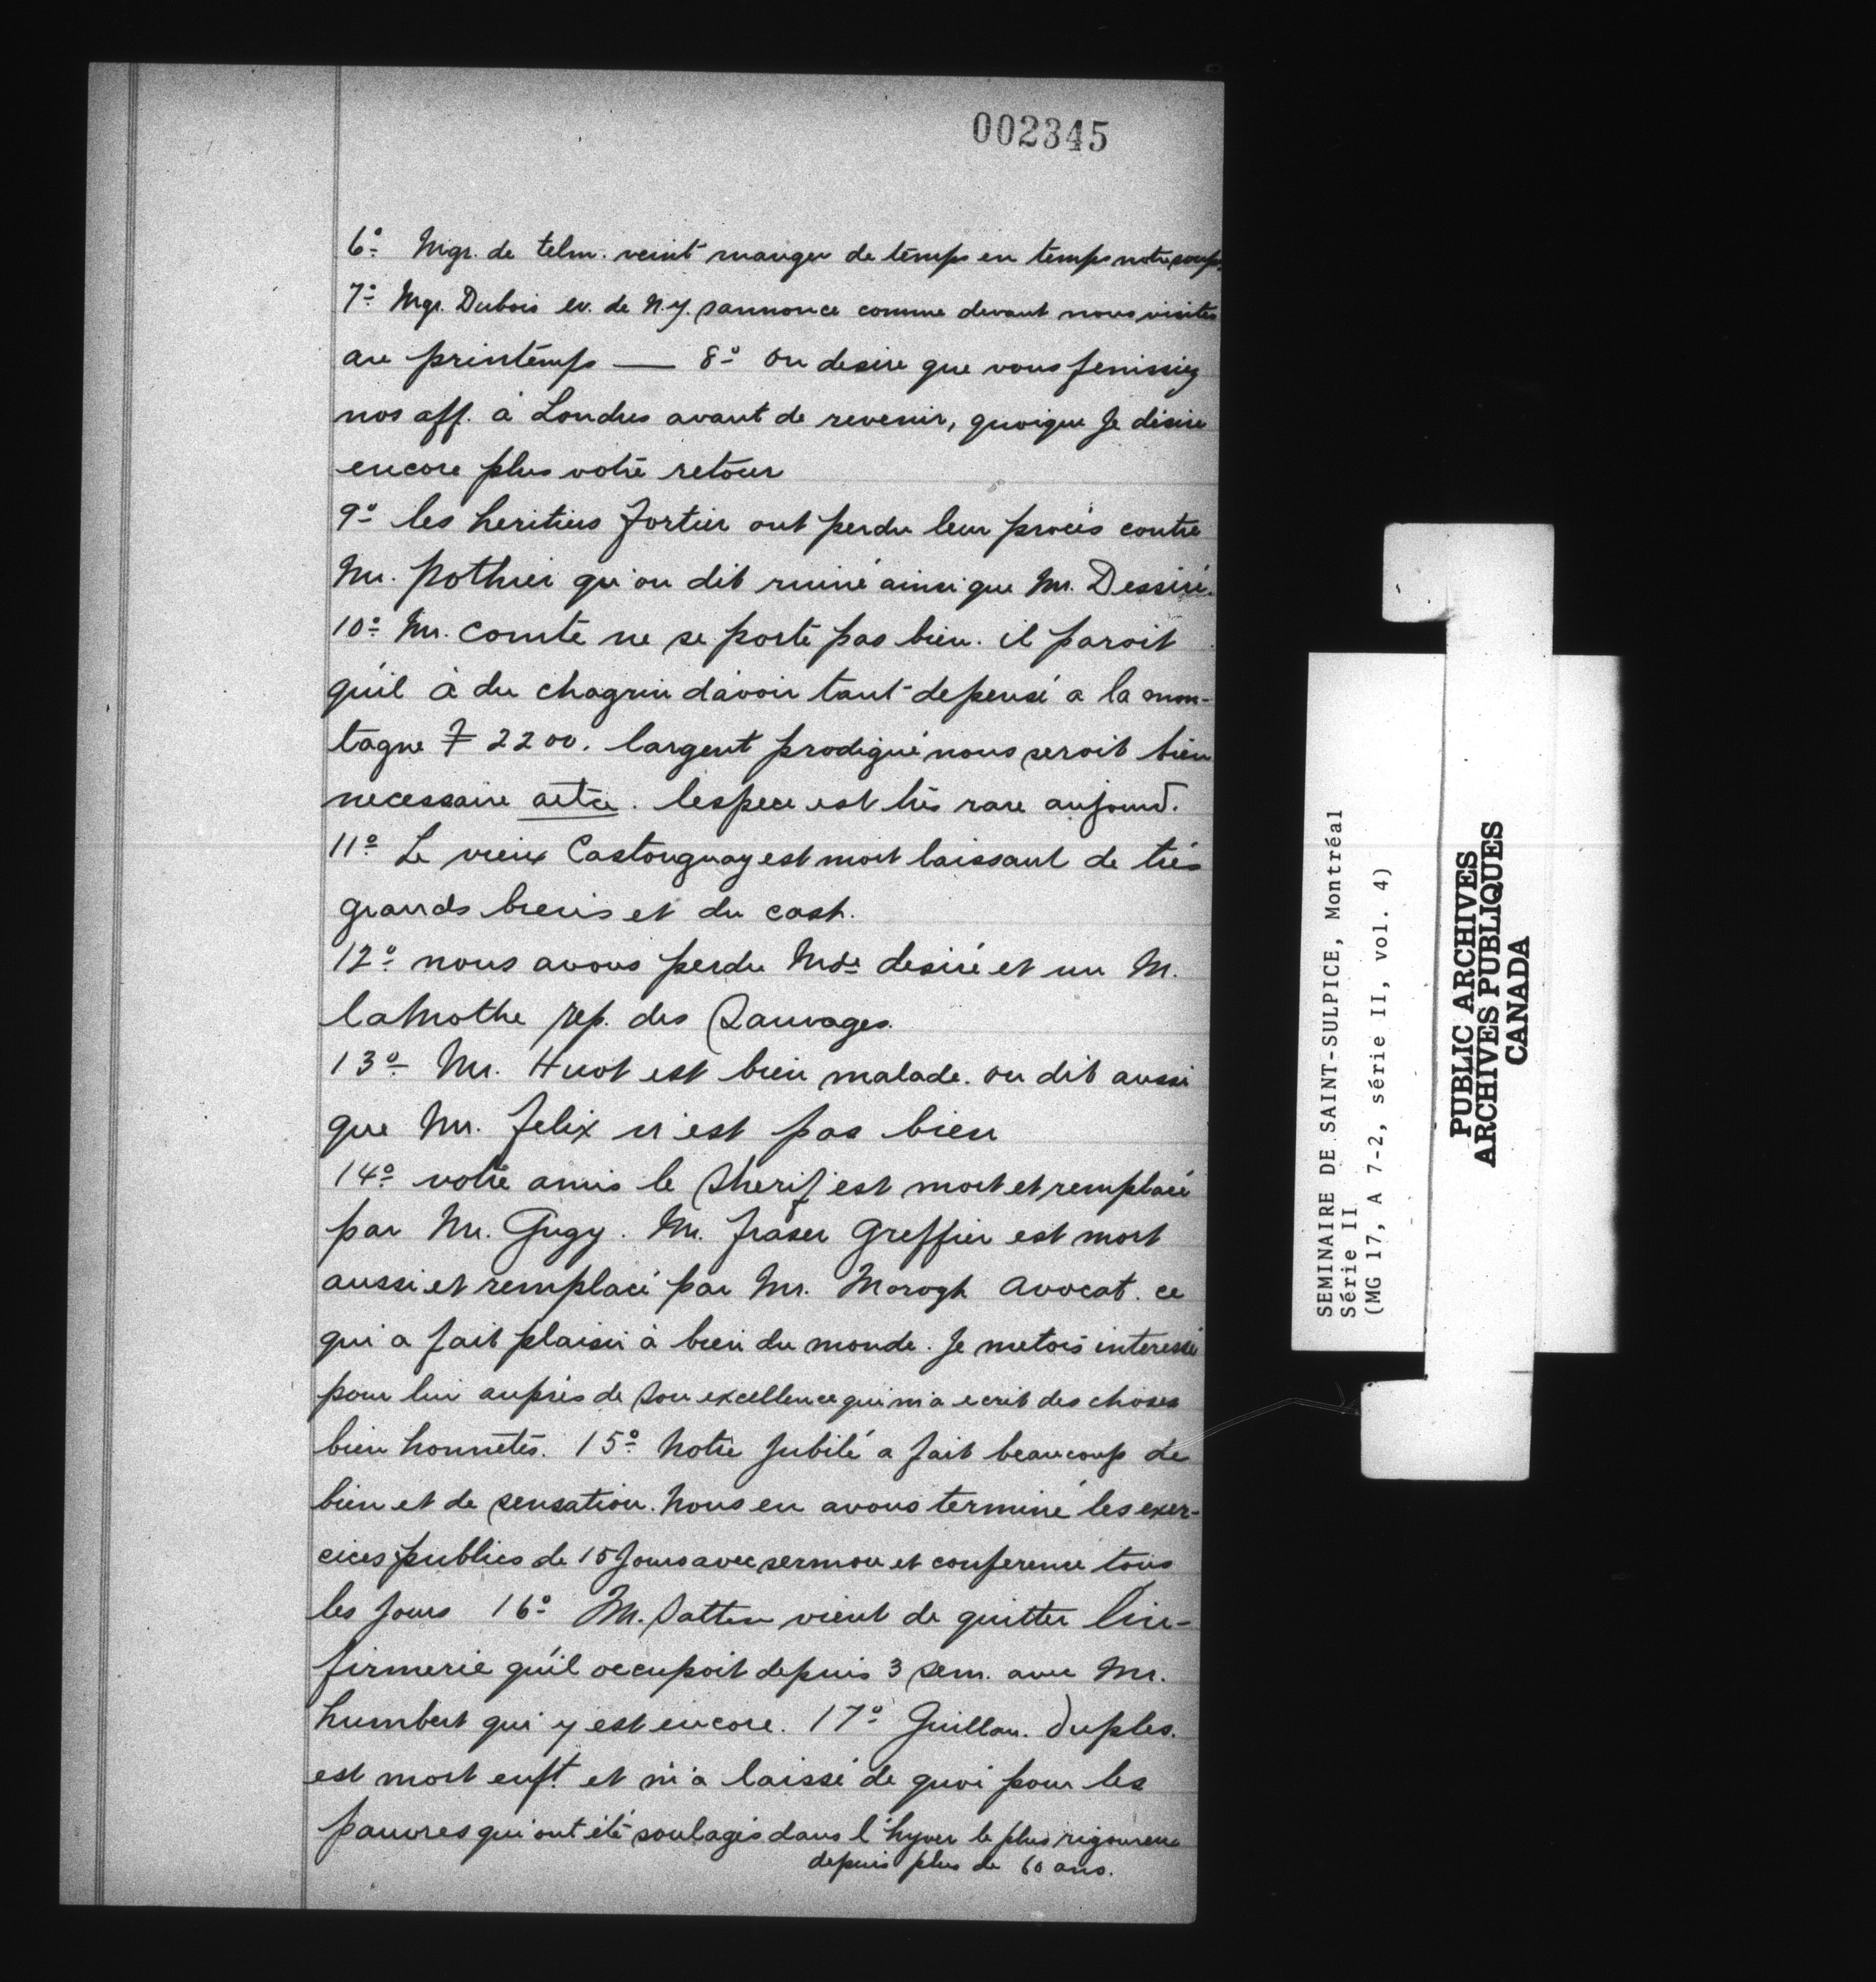 002345
6º Mgr. de telm. veint manger de temps en temps notre soupe
7º Mgr. Dubois ev. de N.Y. sannonce comme devant nous visiter
au printemps — 8º on desire que vous fenissiez
nos aff. à Londres avant de revenir, quoique je désire
encore plus votre retour
9º les heritiers fortier ont perdu leur procès contre
Mr. Pothier qu'on dit ruiné ainsi que Mr. Dessiré.
10º Mr. Comte ne se porte pas bien. il paroit
qu'il à du chagrin d'avoir tant depensé a la mon-
tagne ₣ 2200. largent prodigué nous seroit bien
necessaire lespece est très rare aujourd.
11º Le vieux Castonguay est mort laissant de très
grands biens et du cash.
12º nous avons perdu Mde desiré et un M.
laMothe rep. des Sauvages.
13º Mr. Huot est bien malade. on dit aussi
que Mr. felix n'est pas bien
14º votre amis le Sherif est mort et remplacé
par Mr. Gugy. Mr. fraser Greffier est mort
aussi et remplacé par Mr. Morogh Avocat. ce
qui a fait plaisir à bien du monde. Je metois interessé
pour lui auprès de Son excellence qui m'a ecrit des choses
bien honnêtes. 15º Notre Jubilé a fait beaucoup de
bien et de sensation. Nous en avons terminé les exer-
cices publics de 15 Jours avec sermon et conference tous
les Jours 16º M. Satten vient de quitter l'in-
firmerie qu'il occupoit depuis 3 sem. avec Mr.
humbert qui y est encore. 17º Guillau. Duples.
est mort enft. et m'a laissé de quoi pour les
pauvres qui ont été soulagés dans l'hyver le plus rigoureux
depuis plus de 60 ans.
SEMINAIRE DE SAINT-SULPICE, Montréal
Série II
(MG 17, A 7-2, série II, vol. 4)
PUBLIC ARCHIVES
ARCHIVES PUBLIQUES
CANADA